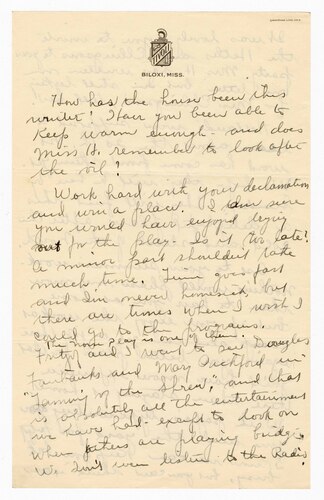 BILOXI, MISS.
How has the house been this
winter? Have you been able to
keep warm enough - and does
Miss H. remember to look after
the oil?
Work hard with your declamation
and win a place. I am sure
you would have enjoyed trying
out for the play - Is it too late?
A minor part shouldn't take
much time. Time goes fast
and I'm never homesick, but
there are times when I wish I
could go to the programs.
The minor play is one of them.
and I went to see Douglas
Fairbanks and Mary Pickford in
"Taming of the Shrew" and that
is absolutely all the entertainment
we have had - except to look on
when others are playing bridge.
We don't even listen to the Radio.